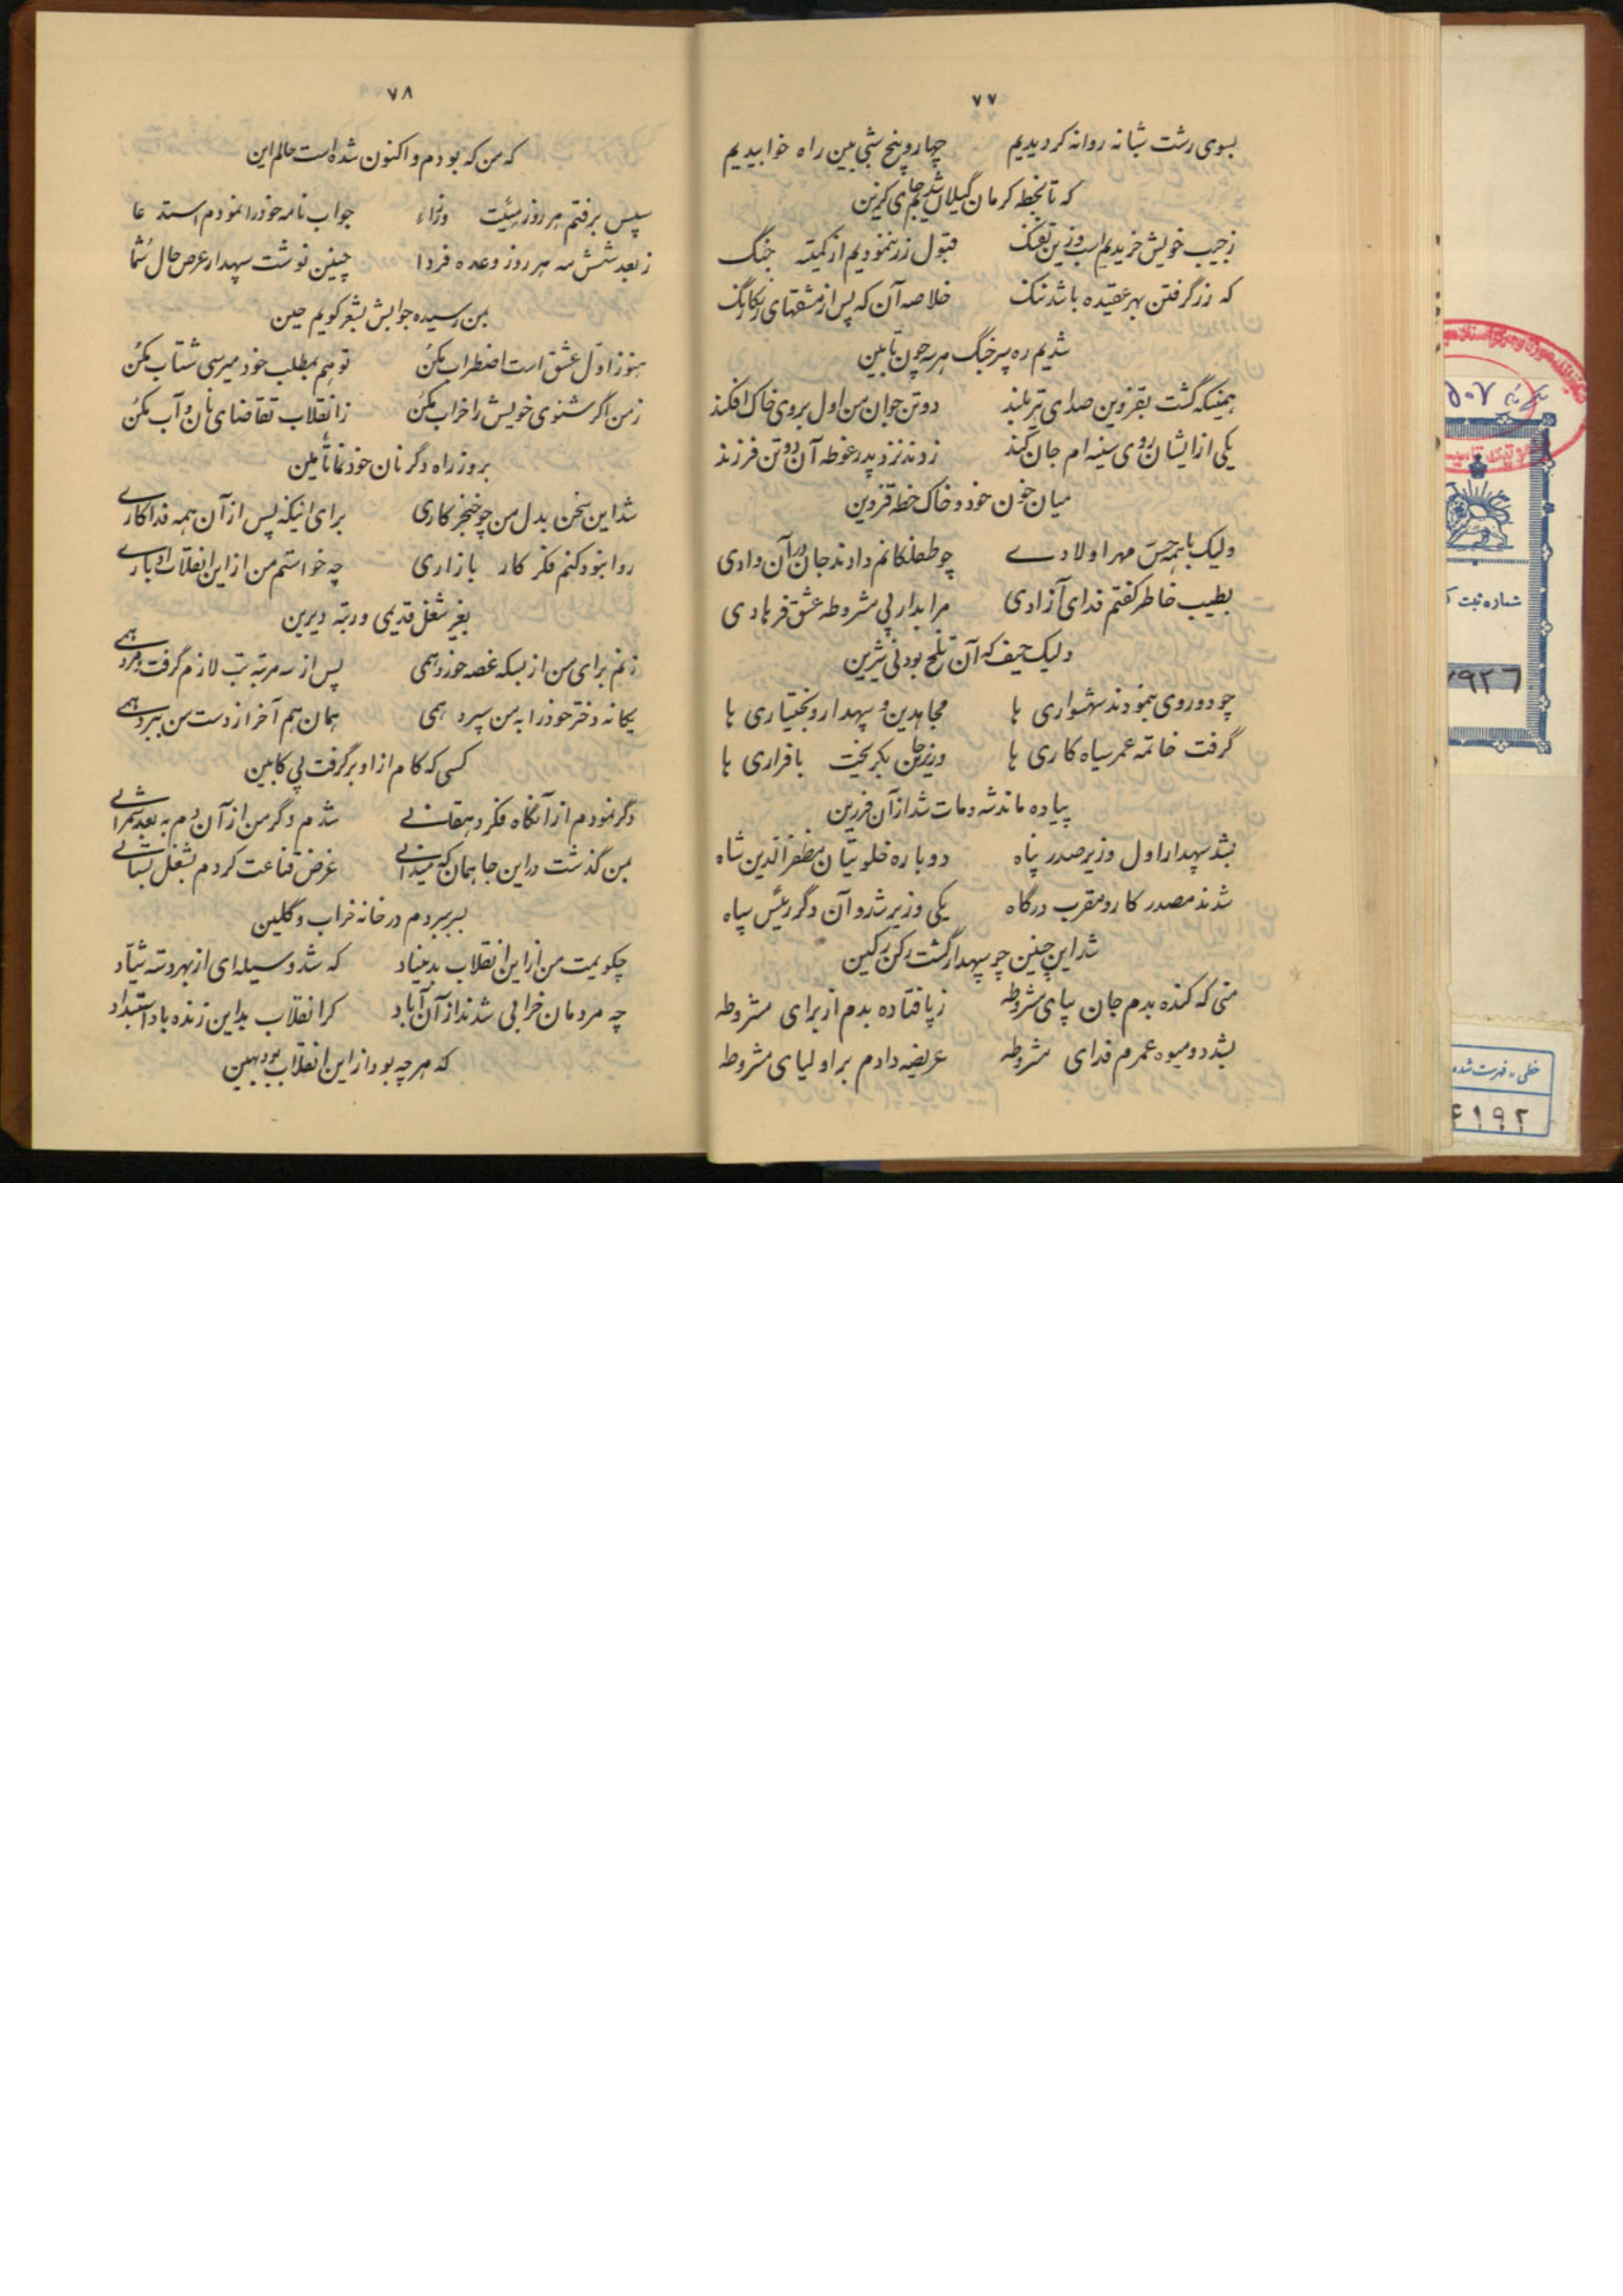 ۷۷
بسوی رشت شبانه روانه کردیدیم چهار و پنج شبی بین راه خوابیدیم
که تا بخطه کرمان گیلان شدیم جای گزین
ز جیب خویش خریدیم اسب و زین تفنگ قبول زر ننمودیم از کمیته جنگ
که زر گرفتن بهر عقیده باشد ننک خلاصه آن که پس از مشقتهای رنکارنگ
شدیم ره سپر جنگ هر سه چون تابین
همینکه گشت بقزوین صدای تیر بلند دو تن جوان من اول بروی خاک افکند
یکی از ایشان روی سینه ام جان کند زدند نزد پدر غوطه آن دو تن فرزند
میان خون خود و خاک خطه قزوین
ولیک با همه حس مهر اولادے چو طفلکانم دادند جان در آن وادی
بطیب خاطر کفتم فدای آزادی مرا بدار پی مشروطه عشق فرهادی
ولیک حیف که آن تلخ بود نی شیرین
چو دو روی بنمودند شهسواری ها مجاهدین و سپهدار و بختیاری ها
گرفت خاتمه عمر سیاه کاری ها وزیر جان بگریخت با فراری ها
پیاده ماند شه و مات شد از آن فرزین
بشد سپهدار اول وزیر صدر پناه دوباره خلوتیان مظفرالدین شاه
شدند مصدر کار و مقرب درگاه یکی وزیر شد و آن دگر رئیس سپاه
شد این چنین چو سپهدار گشت رکن رکین
منی که کنده بدم جان بپای مشروطه ز پا فتاده بدم از برای مشروطه
بشد دو میوه عمرم فدای مشروطه عریضه دادم بر اولیای مشروطه
۷۸
که من که بودم و اکنون شده است حالم این
سپس برفتم هر روز هیئت وزراء جواب نامه خود را نمودم استدعا
ز بعد شش مه هر روز وعده فردا چنین نوشت سپهدار عرض حال شما
بمن رسیده جوابش بشعر کویم حین
هنوز اول عشق است اضطراب مکن تو هم بمطلب خود میرسی شتاب مکن
ز من اگر شنوی خویش را خراب مکن ز انقلاب تقاضای نان و آب مکن
برو ز راه دگر نان خود نما تأمین
شد این سخن بدل من چو خنجر کاری برای اینکه پس از آن همه فداکارے
روا نبود کنم فکر کار بازاری چه خواستم من از این انقلاب ادبارے
بغیر شغل قدیمی و رتبه دیرین
زنم برای من از بسکه غصه خورد همی پس از سه مرتبه تب لازم گرفت و مرد همے
یکانه دختر خود را به من سپرد همی همان هم آخر از دست من ببرد همے
کسی که کام از او برگرفت بی کابین
دگر نمودم از آنگاه فکر دهقانے شدم دگر من از آن دم به بعد شمرانے
بمن گذشت در این جا همان که میدانے غرض قناعت کردم بشغل بستانے
بسر ببردم در خانه خراب و گلین
چکویمت من از این انقلاب بد بنیاد که شد وسیله ای از بهر دسته شیاد
چه مردمان خرابی شدند از آن آباد کر انقلاب بد این زنده باد استبداد
که هر چه بود از این انقلاب بود بهین
۵۰۷
شماره ثبت ک
۹۲۶
خطی - فهرست شده
۴۱۹۲